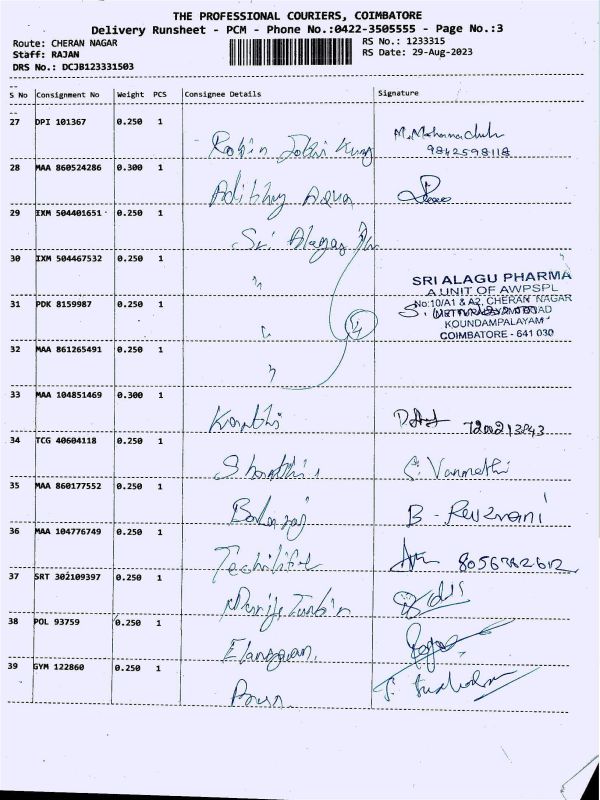 THE PROFESSIONAL COURIERS, COIMBATORE
Delivery Runsheet - PCM - Phone No.:0422-3505555 - Page No.:3
Route: CHERAN NAGAR RS No.: 1233315
Staff: RAJAN RS Date: 29-Aug-2023
DRS No.: DCJB123331503
S No Consignment No Weight PCS Consignee Details Signature
27 DPI 101367 0.250 1
Robin
9842598118
28 MAA 860524286 0.300 1
Adithy Aqua
29 IXM 504401651 0.250 1
Sri Alagar
30 IXM 504467532 0.250 1
"
SRI ALAGU PHARMA
A UNIT OF AWPSPL
No:10/A1 & A2, CHERAN NAGAR
31 PDK 8159987 0.250 1
"
4
KOUNDAMPALAYAM
COIMBATORE - 641 030
32 MAA 861265491 0.250 1
"
33 MAA 104851469 0.300 1
Kanthi
34 TCG 40604118 0.250 1
S. Vanmathi
35 MAA 860177552 0.250 1
Balaraj B - Revanani
36 MAA 104776749 0.250 1
37 SRT 302109397 0.250 1
38 POL 93759 0.250 1
Elangovan.
39 GYM 122860 0.250 1